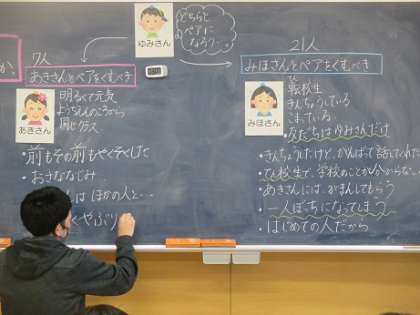 ゆみさん
どちらと
ペアに
なろう…
か、
7人
あきさんとペアをくむべき
あきさん
明るくて元気
ようちえんのころから
同じクラス
・前もその前もやくそくした
・おさななじみ
は ほかの人と…
くやぶり
21人
みほさんとペアをくむべき
みほさん
転校生
きんちょうしている
こまっている
友だちはゆみさんだけ
・きんちょうしたけど、がんばって話してくれた
・転校生で、学校のことが分からない
・あきさんには、がまんしてもらう
・一人ぼっちになってしまう
・はじめての人だから